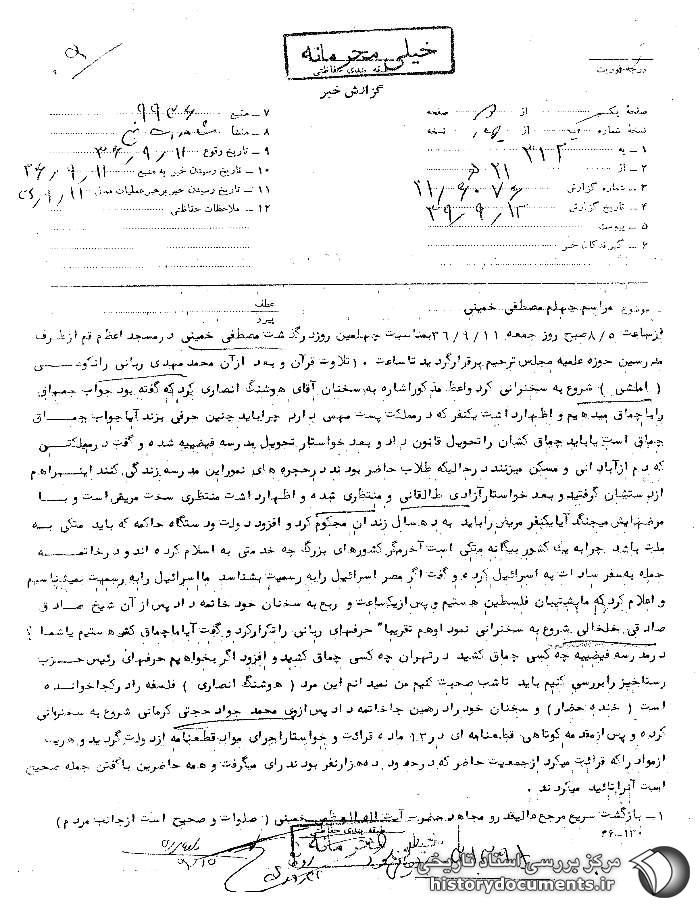 خیلی محرمانه
طبقه بندی حفاظتی
گزارش خبر
درجه فوریت
صفحه یک از صفحه
نسخه شماره از نسخه
۱ ـ به ۳۱۲
۲ ـ از ۲۱ ه
۳ ـ شماره گزارش
۴ ـ تاریخ گزارش ۳۶/۹/۱۲
۵ ـ پیوست
۶ ـ گیرندگان خبر
۷ ـ منبع
۸ ـ منشا
۹ ـ تاریخ وقوع ۳۶/۹/۱۱
۱۰ ـ تاریخ رسیدن خبر به منبع ۳۶/۹/۱۱
۱۱ ـ تاریخ رسیدن خبر برهبر عملیات
۱۲ ـ ملاحظات حفاظتی
موضوع مراسم چهلم مصطفی خمینی
عطف
پیرو
از ساعت ۸/۵ صبح روز جمعه ۳۶/۹/۱۱ بمناسبت چهلمین روز درگذشت مصطفی خمینی در مسجد اعظم قم از طرف
مدرسین حوزه علمیه مجلس ترحیم برقرار گردید تا ساعت ۱۰ تلاوت قرآن و بعد از آن محمد مهدی ربانی رانکوسی
( املشی ) شروع به سخنرانی کرد واعظ مذکور اشاره به سخنان آقای هوشنگ انصاری کرد که گفته بود جواب چماق
را با چماق میدهیم و اظهار داشت یکنفر که در مملکت پست مهمی دارد چرا باید چنین حرفی بزند آیا جواب چماق
چماق است یا باید چماق کشان را تحویل قانون داد و بعد خواستار تحویل مدرسه فیضیه شده و گفت در مملکتی
که دم از آبادانی و مسکن میزنند در حالیکه طلاب حاضر بودند در حجره های نمور این مدرسه زندگی کنند اینرا هم
از دستشان گرفتید و بعد خواستار آزادی طالقانی و منتظری شده و اظهار داشت منتظری سخت مریض است و با
مرضهایش میجنگد آیا یکنفر مریض را باید به ده سال زندان محکوم کرد و افزود دولت و دستگاه حاکمه که باید متکی به
ملت باشد چرا به یک کشور بیگانه متکی است آخر مگر کشورهای بزرگ چه خدمتی به اسلام کرده اند و در خاتمه
حمله به سفر سادات به اسرائیل کرده و گفت اگر مصر اسرائیل را به رسمیت بشناسد ما اسرائیل را به رسمیت نمیشناسیم
و اعلام کرد که ما پشتیبان فلسطین هستیم و پس از یکساعت و ربع به سخنان خود خاتمه داد پس از آن شیخ صادق
صادقی خلخالی شروع به سخنرانی نمود او هم تقریبا" حرفهای ربانی را تکرار کرد و گفت آیا ما چماق کش هستیم یا شما ؟
در مدرسه فیضیه چه کسی چماق کشید در تهران چه کسی چماق کشید و افزود اگر بخواهیم حرفهای رئیس حزب
رستاخیز را بررسی کنیم باید تا شب صحبت کنیم من نمیدانم این مرد ( هوشنگ انصاری ) فلسفه را در کجا خوانده
است ( خنده حضار ) و سخنان خود را در همین جا خاتمه داد پس از وی محمد جواد حجتی کرمانی شروع به سخنرانی
کرده و پس از مقدمه کوتاهی قطعنامه ای در ۱۳ ماده قرائت و خواستار اجرای مواد قطعنامه از دولت گردید و هریک
از مواد را که قرائت میکرد از جمعیت حاضر که در حدود ده هزار نفر بودند رای میگرفت و همه حاضرین با گفتن جمله صحیح
است آنرا تائید میکردند .
۱ ـ بازگشت سریع مرجع عالیقدر و مجاهد حضرت آیت اله العظمی خمینی ( صلوات و صحیح است از جانب مردم )
طبقه بندی حفاظتی
مرکز بررسی اسناد تاریخی
historydocuments.ir